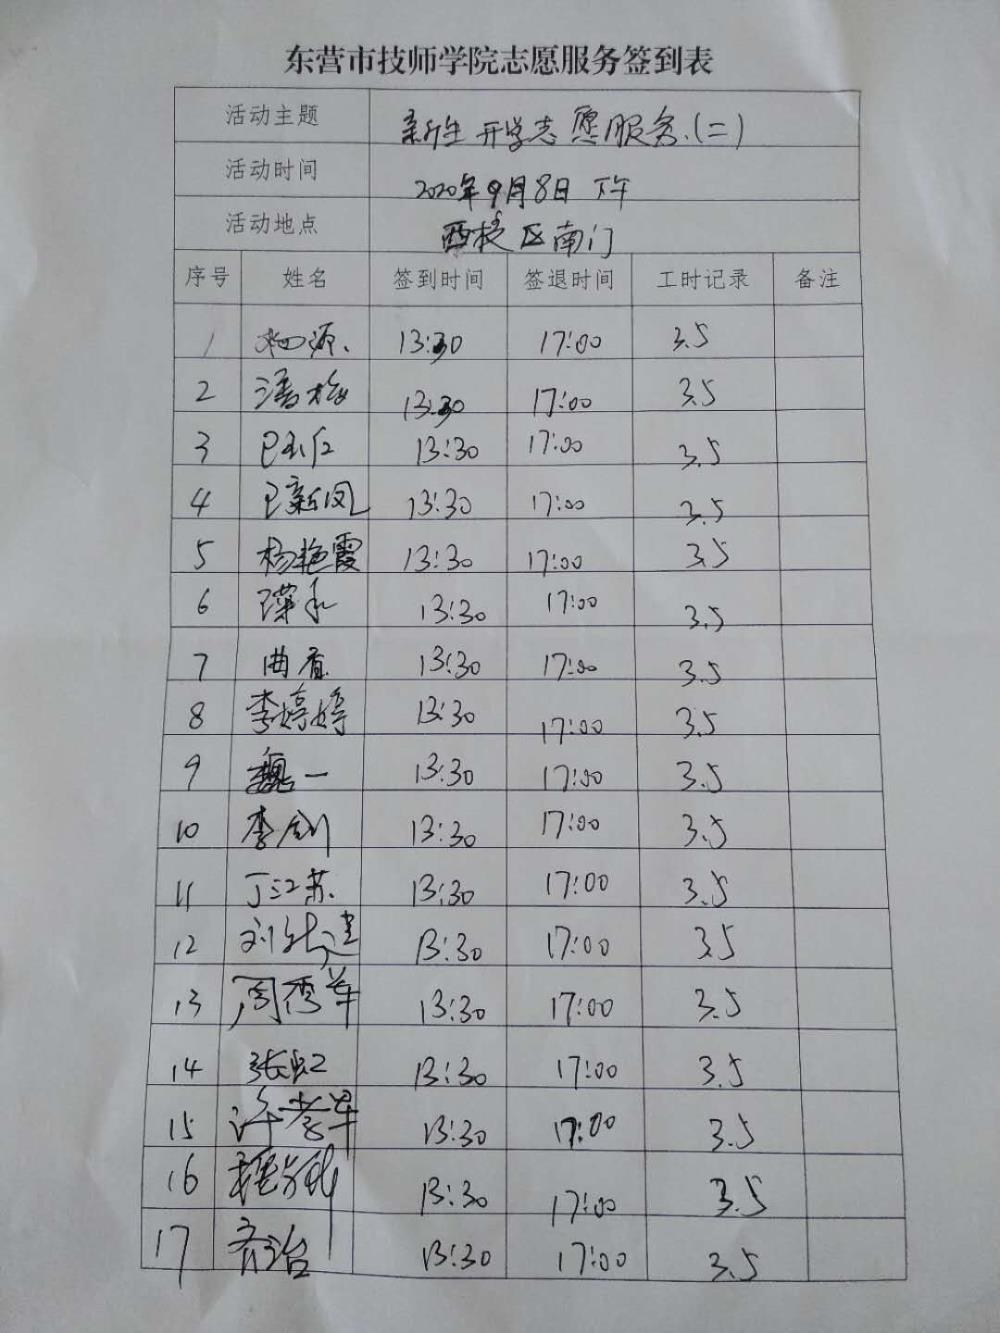 东营市技师学院志愿服务签到表
活动主题 新生开学志愿服务.(二)
活动时间 2020年9月8日 下午
活动地点 西校区南门
序号 姓名 签到时间 签退时间 工时记录 备注
1 13:30 17:00 3.5
2 潘梅 13:30 17:00 3.5
3 13:30 17:00 3.5
4 新凤 13:30 17:00 3.5
5 杨艳霞 13:30 17:00 3.5
6 13:30 17:00 3.5
7 曲 13:30 17:00 3.5
8 李婷婷 13:30 17:00 3.5
9 魏一 13:30 17:00 3.5
10 李剑 13:30 17:00 3.5
11 丁江苏 13:30 17:00 3.5
12 刘 13:30 17:00 3.5
13 周秀军 13:30 17:00 3.5
14 张虹 13:30 17:00 3.5
15 许孝军 13:30 17:00 3.5
16 13:30 17:00 3.5
17 齐治 13:30 17:00 3.5